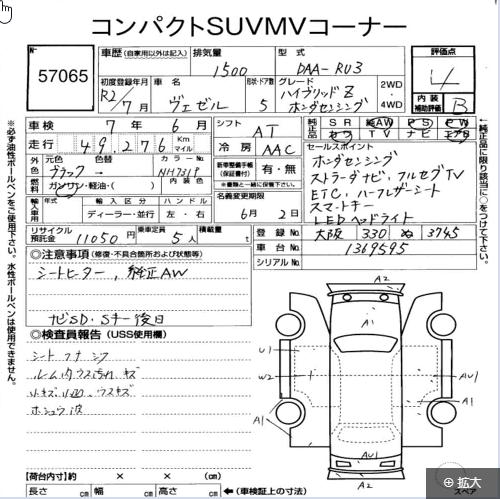 コンパクトSUVMVコーナー
No. 57065
車歴 (自家用以外は記入) 排気量 1500 型式 DAA-RU3
評価点 4
内装 補助評価 B
初度登録年月 R2/7月 車名 ヴェゼル 形状・ドア数 5 グレード ハイブリッドZ ホンダセンシング 2WD・4WD
車検 7年6月 シフト AT
走行 49,276 Km マイル 冷房 AAC
純正品 SR AW PS PW 革 TV ナビ エアB
外色 元色 ブラック 色替 → カラーNo. NH731P
燃料 ガソリン・軽油・( ) 内装色
新車整備手帳(保証書付) 有・無
※書類と一緒に保管下さい。
セールスポイント
ホンダセンシング
ストラーダナビ, フルセグTV
ETC, ハーフレザーシート
スマートキー
LEDヘッドライト
輸入車用 年式 輸入区分 ディーラー・並行 ハンドル 左・右
名義変更期限 6月2日
リサイクル預託金 11050円 乗車定員 5人 積載量 t
登録No. 大阪 330 ぬ 3745
車台No. 1369595
シリアルNo.
◎注意事項 (修復・不具合箇所および状態等)
シートヒーター, 純正AW
ナビSD・Sキー後日
◎検査員報告 (USS使用欄)
シート
ルーム内ウス汚れ キズ
小キズ 凹 ウスキズ
ホシュウ波
A2
A1
U1
W2
A1
AU1
A1
AU1
A2
スペア
【荷台内寸】約 × × (cm)
長さ cm 幅 cm 高さ cm ←(車検証上の寸法)
※必ず油性ボールペンをご使用下さい。水性ボールペンは使用できません。
↑純正品に限り該当に○をつけて下さい。
拡大